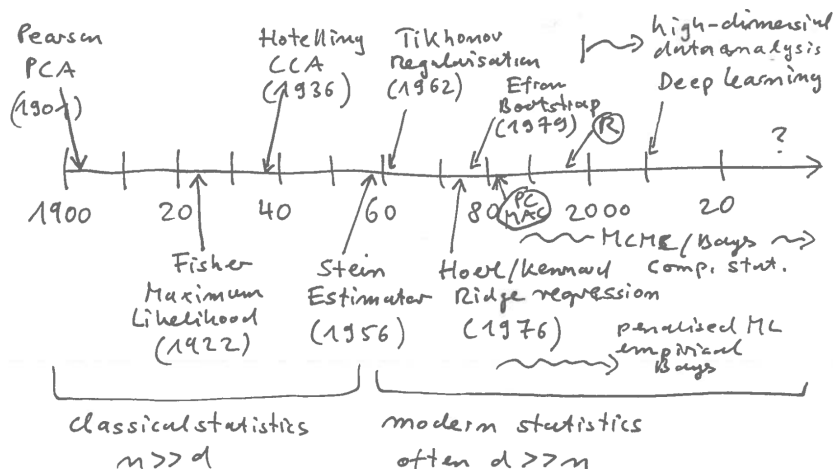 Pearson
PCA
(1901)
Hotelling
CCA
(1936)
Tikhonov
Regularisation
(1962)
Efron
Bootstrap
(1979)
R
high-dimensial
data analysis
Deep learning
?
1900 20 40 60 80 2000 20
PC
MAC
Fisher
Maximum
Likelihood
(1922)
Stein
Estimator
(1956)
Hoerl/Kennard
Ridge regression
(1976)
MCMC/Bays
Comp. stat.
penalised ML
empirical
Bays
classical statistics
n>>d
modern statistics
often d>>n